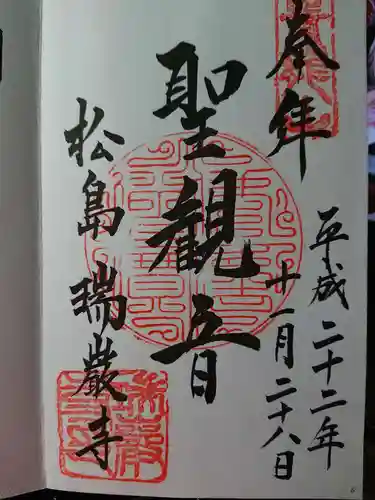 奉拝
平成二十二年
十一月二十八日
聖観音
松島 瑞巌寺